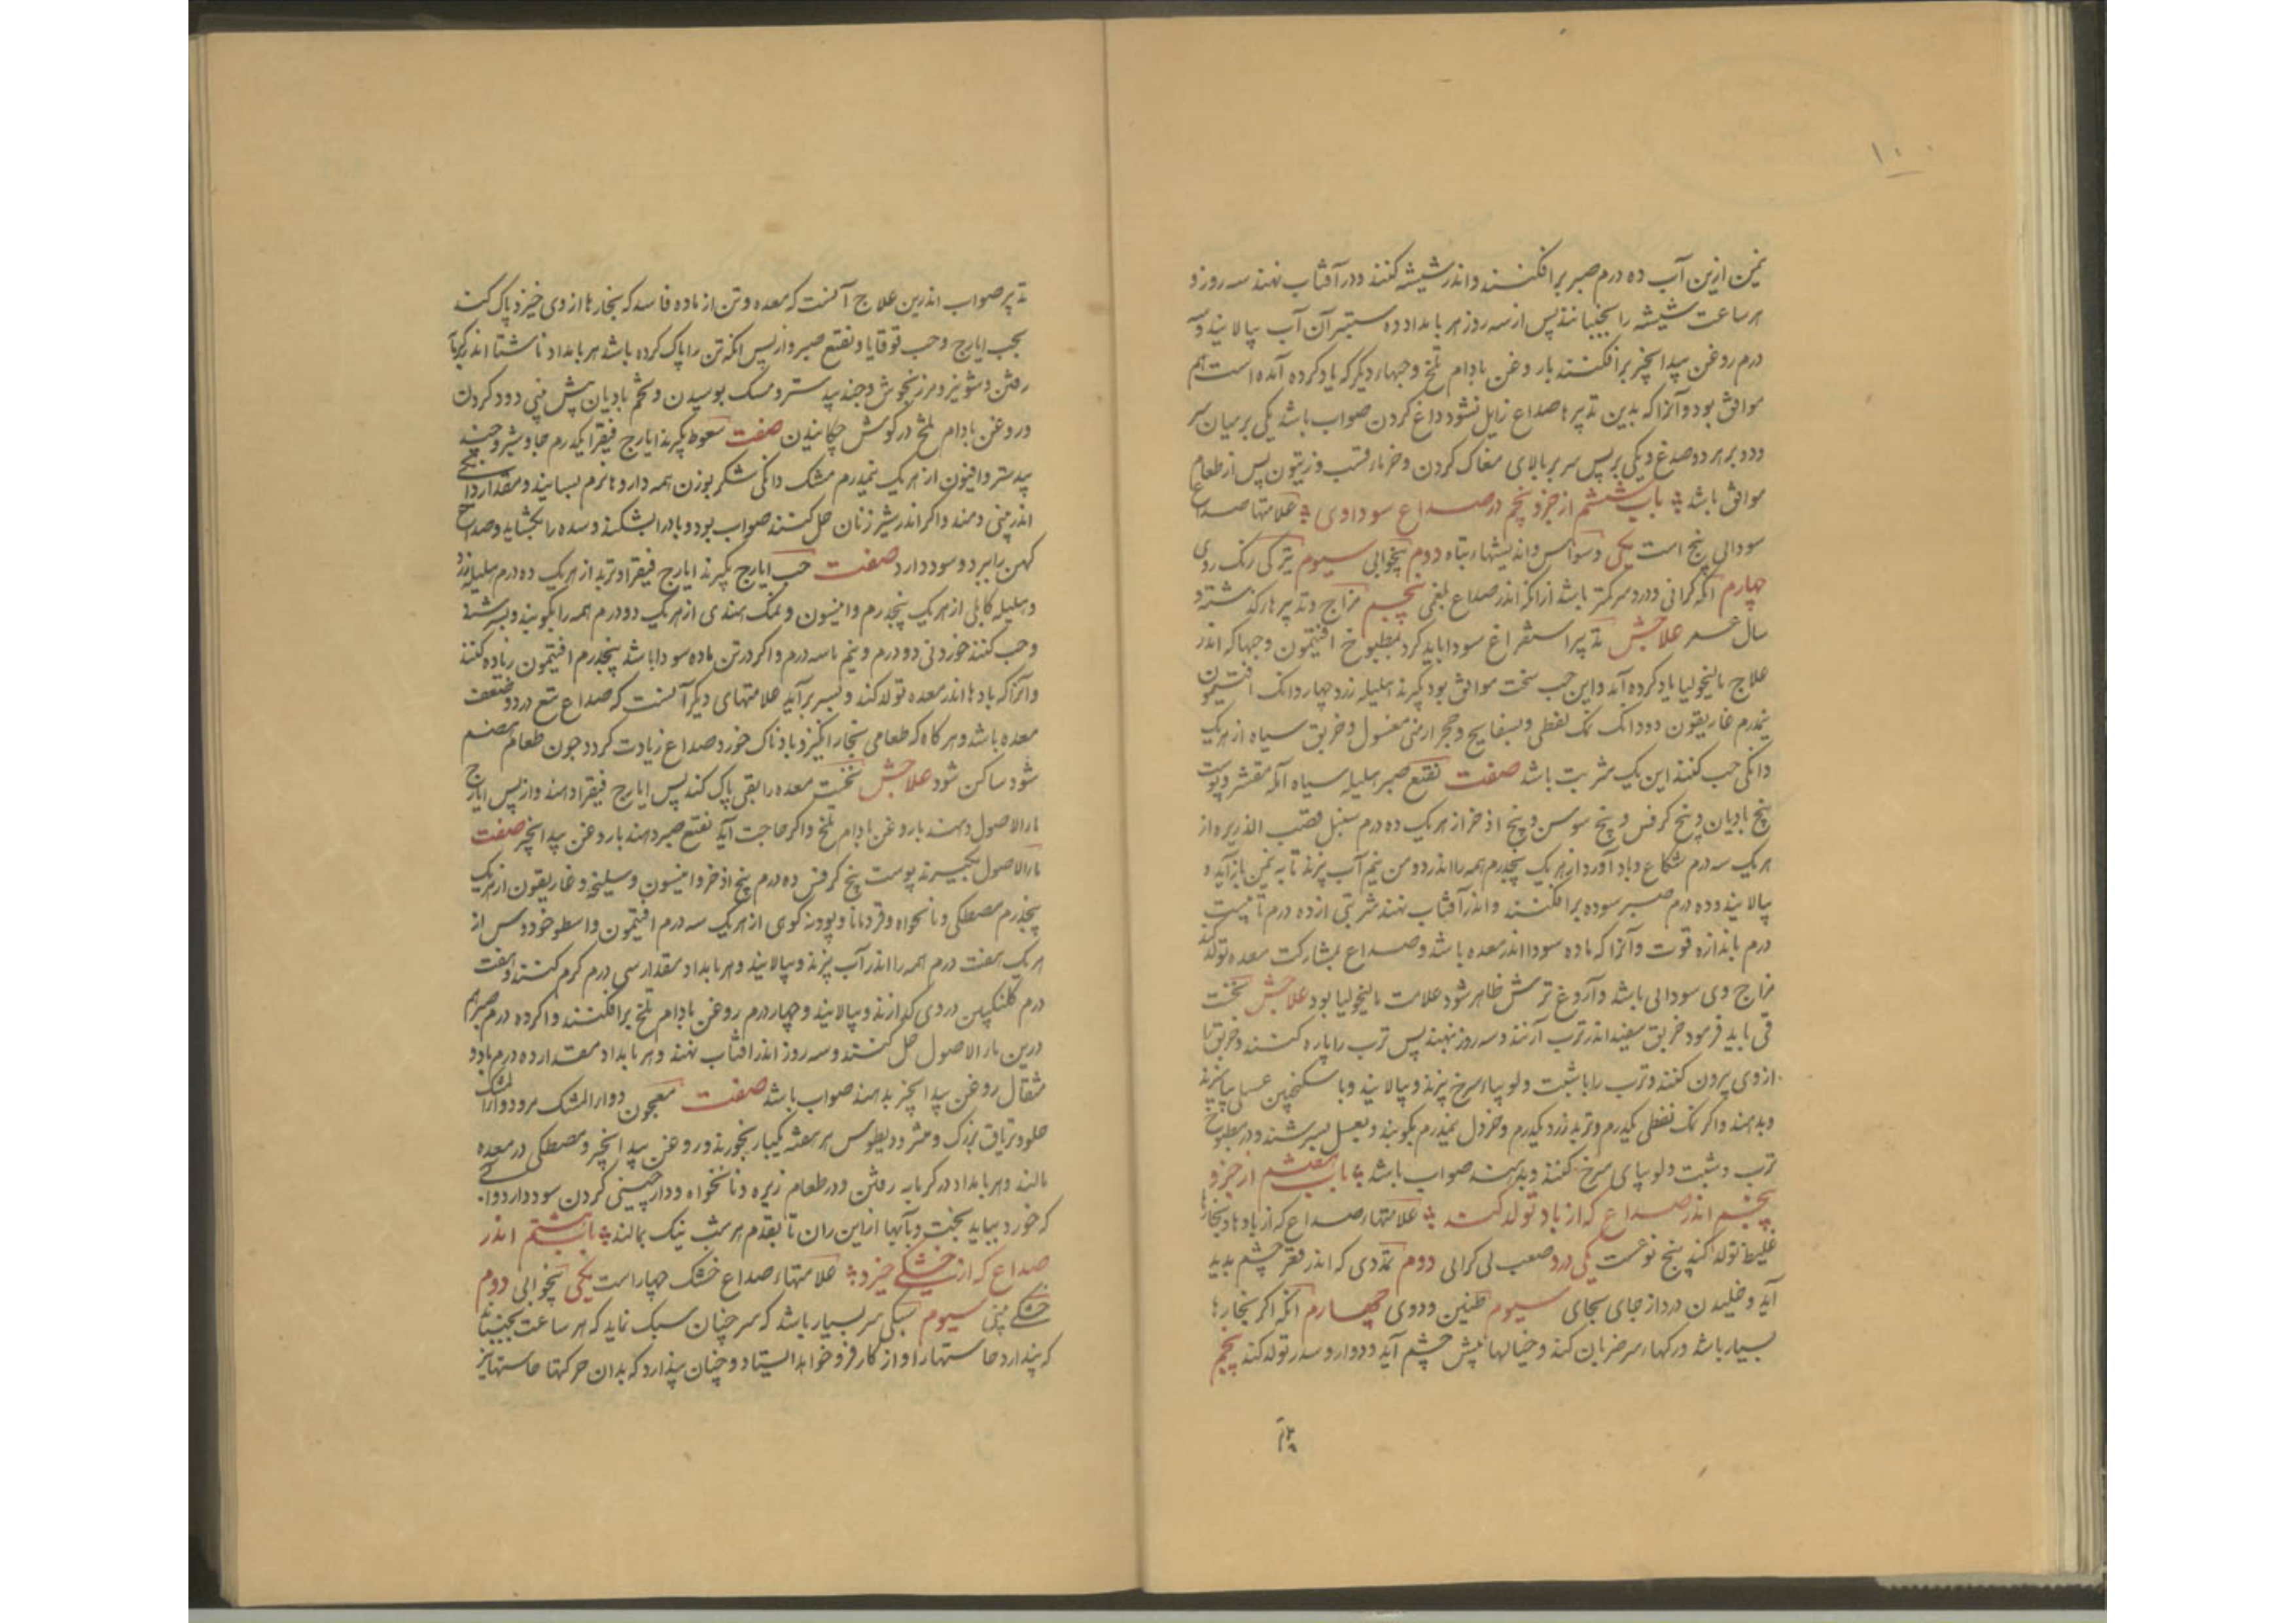 ۱۰۰
نمن ازین آب ده درم صبر برافکنند و اندر شیشه کنند و در آفتاب نهند سه روز و
هر ساعت شیشه را بجنبانند پس از سه روز هر بامداد ده ستیر آن آب بپالایند و سه
درم روغن بیدانجیر برافکنند یا روغن بادام تلخ و حبهاء دیگر که یاد کرده آمده است هم
موافق بود و آنرا که بدین تدبیرها صداع زایل نشود داغ کردن صواب باشد یکی بر میان سر
و دو بر هر دو صدغ و یکی بر پس سر بر بالای مغاک کردن و خرماء قسب و زیتون پس از طعام
موافق باشد باب ششم از جزو پنجم در صداع سوداوی علامتها صداع
سودائی پنج است یکی وسواس و اندیشهاء تباه دوم بیخوابی سیوم تیرگی رنگ روی
چهارم آنکه گرانی و درد سر کمتر باشد از آنکه اندر صداع بلغمی پنجم مزاج و تدبیرها گذشته و
سال عمر علاجش تدبیر استفراغ سودا باید کرد بمطبوخ افتیمون و حبها که اندر
علاج مالیخولیا یاد کرده آید و این حب سخت موافق بود بگیرند هلیله زرد چهار دانگ افتیمون
نیمدرم غاریقون دو دانک نمک نفطی و بسفایج و حجر ارمنی مغسول و خربق سیاه از هر یک
دانگی حب کنند این یک شربت باشد صفت نقیع صبر هلیله سیاه آمله مقشر و پوست
بیخ بادیان و بیخ کرفس و بیخ سوسن و بیخ اذخر از هر یک ده درم سنبل قصب الذریره از
هر یک سه درم شکاع و بادآورد از هر یک پنجدرم همه را اندر دو من نیم آب بپزند تا به نمن بازآید و
بپالایند و ده درم صبر سوده برافکنند و اندر آفتاب نهند شربتی از ده درم تا بیست
درم باندازه قوت و آنرا که ماده سودا اندر معده باشد و صداع بمشارکت معده تولد کند
مزاج وی سودائی باشد و آروغ ترش ظاهر شود علامت مالیخولیا بود علاجش نخست
قی باید فرمود خربق سفید اندر ترب آژنند و سه روز بنهند پس ترب را پاره کنند و خربق را
از وی بیرون کنند و ترب را با شبت و لوبیاء سرخ بپزند و بپالایند و با سکنجبین عسلی بیامیزند
و بدهند و اگر نمک نفطی یکدرم و تربد زرد یکدرم و خردل نیمدرم بکوبند و بعسل بسرشند و در مطبوخ
ترب و شبت و لوبیای سرخ کنند و بدهند صواب باشد باب هفتم از جزو
پنجم اندر صداع که از باد تولد کند علامتهاء صداع که از بادها و بخارها
غلیظ تولد کند پنج نوعست یکی درد صعب بی گرانی دوم تمددی که اندر قعر چشم پدید
آید و خلیدن درد از جای بجای سیوم طنین و دوی چهارم آنکه اگر بخارها
بسیار باشد رگهاء سر ضربان کند و خیالها پیش چشم آید و دوار و سدر تولد کند پنجم
تدبیر صواب اندرین علاج آنست که معده و تن از ماده فاسد که بخارها از وی خیزد پاک کنند
بحب ایارج و حب قوقایا و نقیع صبر و از پس آنکه تن را پاک کرده باشد هر بامداد ناشتا اندر گرمابه
رفتن و شونیز و مرزنجوش و جندبیدستر و مسک بوییدن و تخم بادیان پیش بینی دود کردن
و روغن بادام تلخ در گوش چکانیدن صفت سعوط بگیرند ایارج فیقرا یکدرم جاوشیر و جند
بیدستر و افیون از هر یک نیمدرم مشک دانگی شکر بوزن همه داروها نرم بسایند و مقدار دانگی
اندر بینی دمند و اگر اندر شیر زنان حل کنند صواب بود و باد را بشکند و سده را بگشاید و صداع
کهن را ببرد و سود دارد صفت حب ایارج بگیرند ایارج فیقرا و تربد از هر یک ده درم هلیله زرد
و هلیله کابلی از هر یک پنجدرم و انیسون و نمک هندی از هر یک دو درم همه را بکوبند و بسرشند
و حب کنند خوردنی دو درم و نیم تا سه درم و اگر در تن ماده سودا باشد پنجدرم افتیمون زیاده کنند
و آنرا که بادها اندر معده تولد کند و بسر برآید علامتهای دیگر آنست که صداع تبع درد و ضعف
معده باشد و هر گاه که طعامی بخارانگیز و بادناک خورد صداع زیادت گردد چون طعام هضم
شود ساکن شود علاجش نخست معده را بقی پاک کنند پس ایارج فیقرا دهند و از پس ایارج
ماء الاصول دهند با روغن بادام تلخ و اگر حاجت آید نقیع صبر دهند با روغن بیدانجیر صفت
ماء الاصول بگیرند پوست بیخ کرفس ده درم بیخ اذخر و انیسون و سلیخه و غاریقون از هر یک
پنجدرم مصطکی و نانخواه و قردمانا و پودنه کوی از هر یک سه درم افتیمون و اسطوخودوس از
هر یک هفت درم همه را اندر آب بپزند و بپالایند و هر بامداد مقدار سی درم گرم کنند و هفت
درم گلنگبین در وی گدازند و بپالایند و چهار درم روغن بادام تلخ برافکنند و اگر ده درم صبر هم
درین ماء الاصول حل کنند و سه روز اندر آفتاب نهند و هر بامداد مقدار ده درم با دو
مثقال روغن بیدانجیر بدهند صواب باشد صفت معجون دواء المشک مر و دواء المشک
حلو و تریاق بزرگ و مثرودیطوس هر هفته یکبار بخورند و روغن بیدانجیر و مصطکی در معده
مالند و هر بامداد در گرمابه رفتن و در طعام زیره و نانخواه و دارچینی کردن سود دارد و آب
که خورد بباید پخت و بآبها ازاین ران تا بقدم هر شب نیک بمالند باب هشتم اندر
صداع که از خشکی خیزد علامتهاء صداع خشک چهار است یکی بیخوابی دوم
خشکی بینی سیوم سبکی سر بسیار باشد که سر چنان سبک نماید که هر ساعت بجنباند
که پندارد حاستها را و از کار فرو خواهد ایستاد و چنان پندارد که بدان حرکتها حاستها تیز